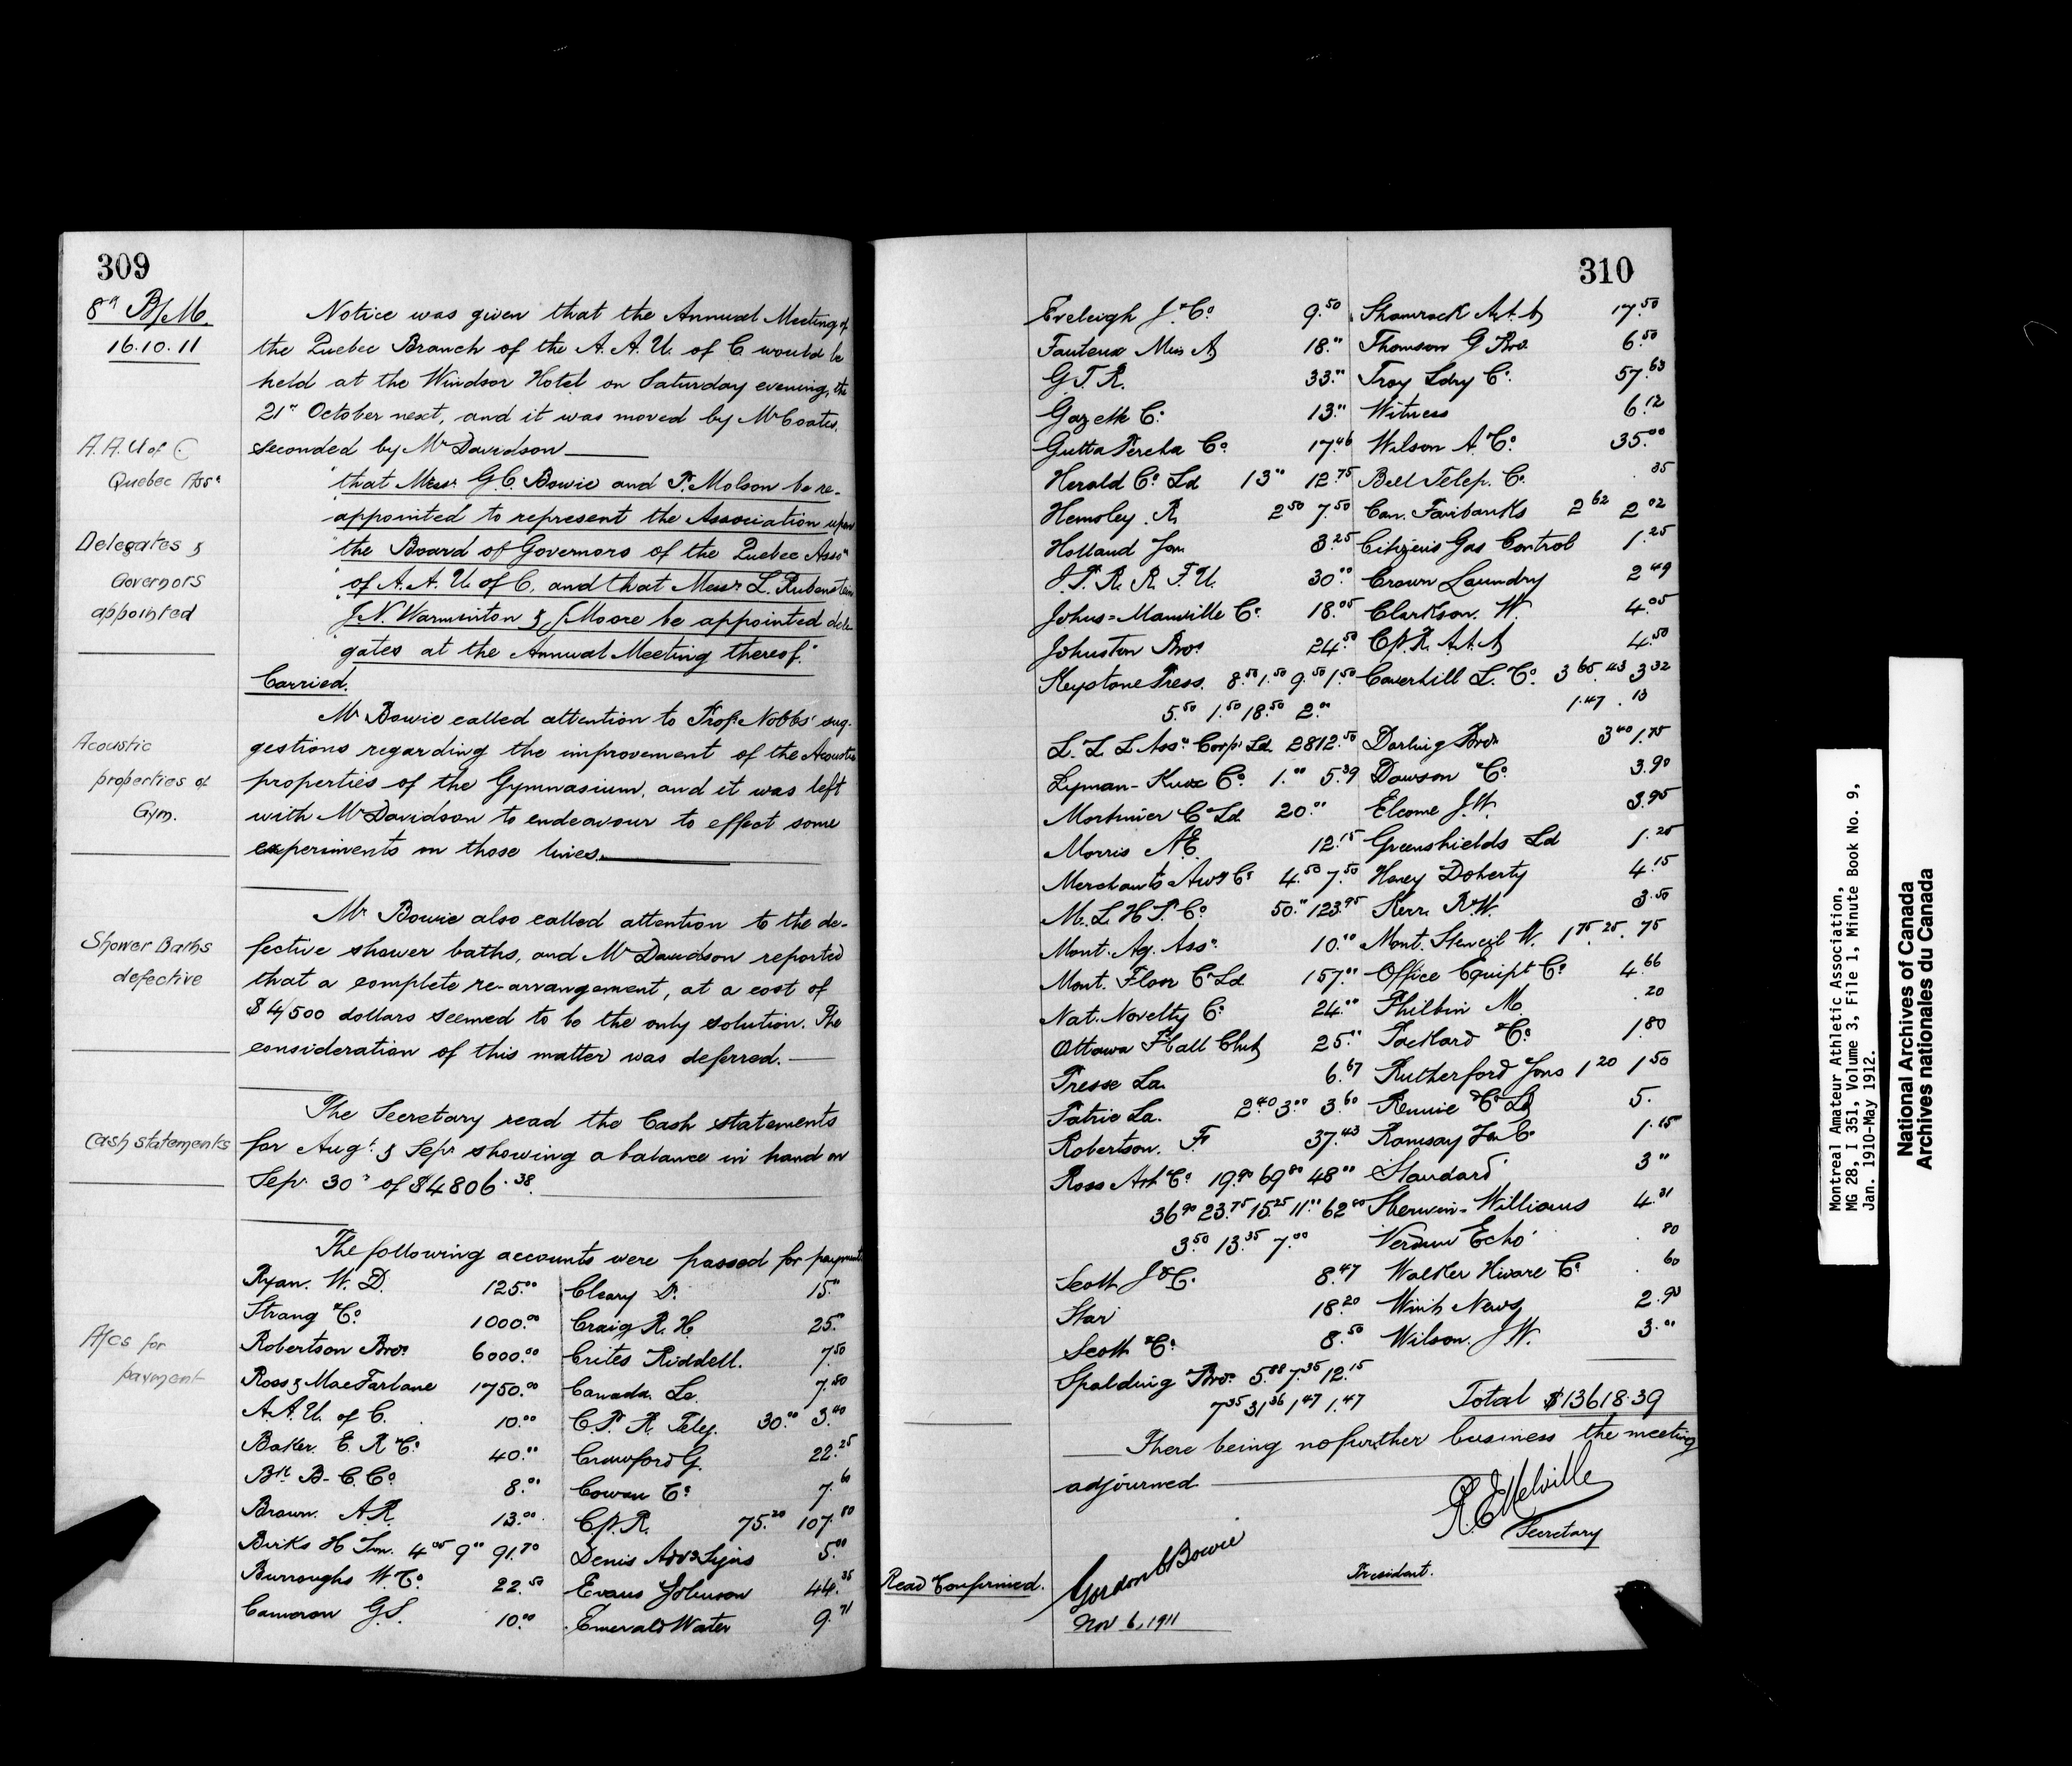 309
8th B/M.
16.10.11
Notice was given that the Annual Meeting of
the Quebec Branch of the A. A. U. of C would be
held at the Windsor Hotel on Saturday evening, the
21st October next, and it was moved by Mr Coates,
seconded by Mr Davidson
A.A.U of C
Quebec Assn
"that Messrs G. C. Bowie and P. Molson be re-
"appointed to represent the Association upon
Delegates &
Governors
appointed
"the Board of Governors of the Quebec Assn
"of A. A. U. of C. and that Messrs L. Rubenstein
J. N. Warminton & J Moore be appointed dele-
"gates at the Annual Meeting thereof."
Carried.
Mr Bowie called attention to Prof. Nobbs' sug-
gestions regarding the improvement of the Acoustic
Acoustic
properties of
Gym.
properties of the Gymnasium, and it was left
with Mr Davidson to endeavour to effect some
experiments on those lines.
Mr Bowie also called attention to the de-
Shower Baths
defective
fective shower baths, and Mr Davidson reported
that a complete re-arrangement, at a cost of
$4/500 dollars seemed to be the only solution. The
consideration of this matter was deferred.
The Secretary read the Cash statements
Cash statements
for Augt & Sepr showing a balance in hand on
Sepr 30th of $4806.38.
The following accounts were passed for payment
A/cs for
payment
Ryan. W. D. 125.00 Cleary D. 15.00
Strang & Co 1000.00 Craig R. H. 25.00
Robertson Bros 6000.00 Crites Riddell. 7.50
Ross & MacFarlane 1750.00 Canada La. 7.50
A.A.U. of C. 10.00 C. P. R. Teleg. 30.00 3.40
Baker. E. R & Co 40.00 Crawford G. 22.25
Bk B- C. Co 8.00 Cowan Co 7.60
Brown. A.R. 13.00 C.P.R. 75.20 107.80
Birks H Son. 4.05 9.00 91.70 Denis Advg Signs 5.00
Burroughs W. Co 22.50 Evans Johnson 44.35
Cameron G.S. 10.00 Emerald Water 9.71
310
Eveleigh J. & Co 9.50 Shamrock A.A.A 17.50
Fauteux Miss A 18.00 Thomson G Bros. 6.50
G.T.R. 33.00 Troy Ldry Co. 57.63
Gazette Co. 13.00 Witness 6.12
Gutta Percha Co. 17.46 Wilson A. Co. 35.00
Herald Co. Ld 13.00 12.75 Bell Telep. Co. .35
Hemsley. R. 2.50 7.50 Can. Fairbanks 2.62 2.02
Holland Son 3.25 Citizens Gas Control 1.25
J.P.R.R.F.U. 30.00 Crown Laundry 2.49
Johns=Manville Co. 18.05 Clarkson. W. 4.05
Johnston Bros 24.50 C.P.R. A.A.A 4.50
Keystone Press. 8.50 1.50 9.50 1.50 Caverhill L. & Co. 3.65 .43 3.32
5.50 1.50 18.50 2.00 1.47 .13
L. L. L Assn Corpn Ld. 2812.50 Darling Bros 3.40 1.75
Lyman-Knox Co. 1.00 5.39 Dawson & Co. 3.90
Mortimer Co Ld. 20.00 Elcome J.W. 3.95
Morris A.E. 12.15 Greenshields Ld 1.25
Merchants Awg Co 4.50 7.50 Henry Doherty 4.15
M. L. H. P. Co. 50.00 123.95 Kerr. R.W. 3.50
Mont. Ag. Assn. 10.00 Mont. Stencil W. 1.75 .25 .75
Mont. Floor Co Ld. 157.00 Office Equipt Co. 4.66
Nat. Novelty Co. 24.00 Philbin M. .20
Ottawa F'ball Club 25.00 Packard & Co. 1.80
Presse La. 6.67 Rutherford Sons 1.20 1.50
Patrie La. 2.40 3.00 3.60 Rennie & Co Ld 5.
Robertson. F. 37.43 Ramsay Son Co. 1.15
Ross Art Co. 19.90 69.80 48.00 Standard 3.00
36.90 23.75 15.25 11.00 62.80 Sherwin-Williams 4.31
3.50 13.35 7.00 Verdun Echo .80
Scott J & Co. 8.47 Walker Hware Co. .60
Star 18.20 Winb News 2.90
Scott & Co. 8.50 Wilson. J.W. 3.00
Spalding Bros. 5.88 7.35 12.15
7.35 31.36 1.47 1.47 Total $13618.39
There being no further business the meeting
adjourned
R. E. Melville
Secretary
Read & Confirmed.
Gordon C Bowie
President.
Nov 6, 1911
Montreal Amateur Athletic Association,
MG 28, I 351, Volume 3, File 1, Minute Book No. 9,
Jan. 1910-May 1912.
National Archives of Canada
Archives nationales du Canada